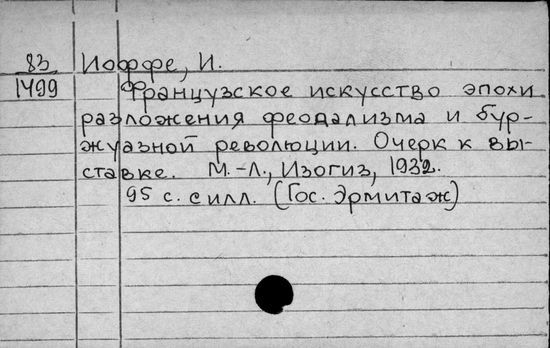 83 Иоффе, И.
1499 Французское искусство эпохи
разложения феодализма и бур-
жуазной революции. Очерк к вы-
ставке. М.-Л., Изогиз, 1932.
95 с. с илл. (Гос. Эрмитаж)